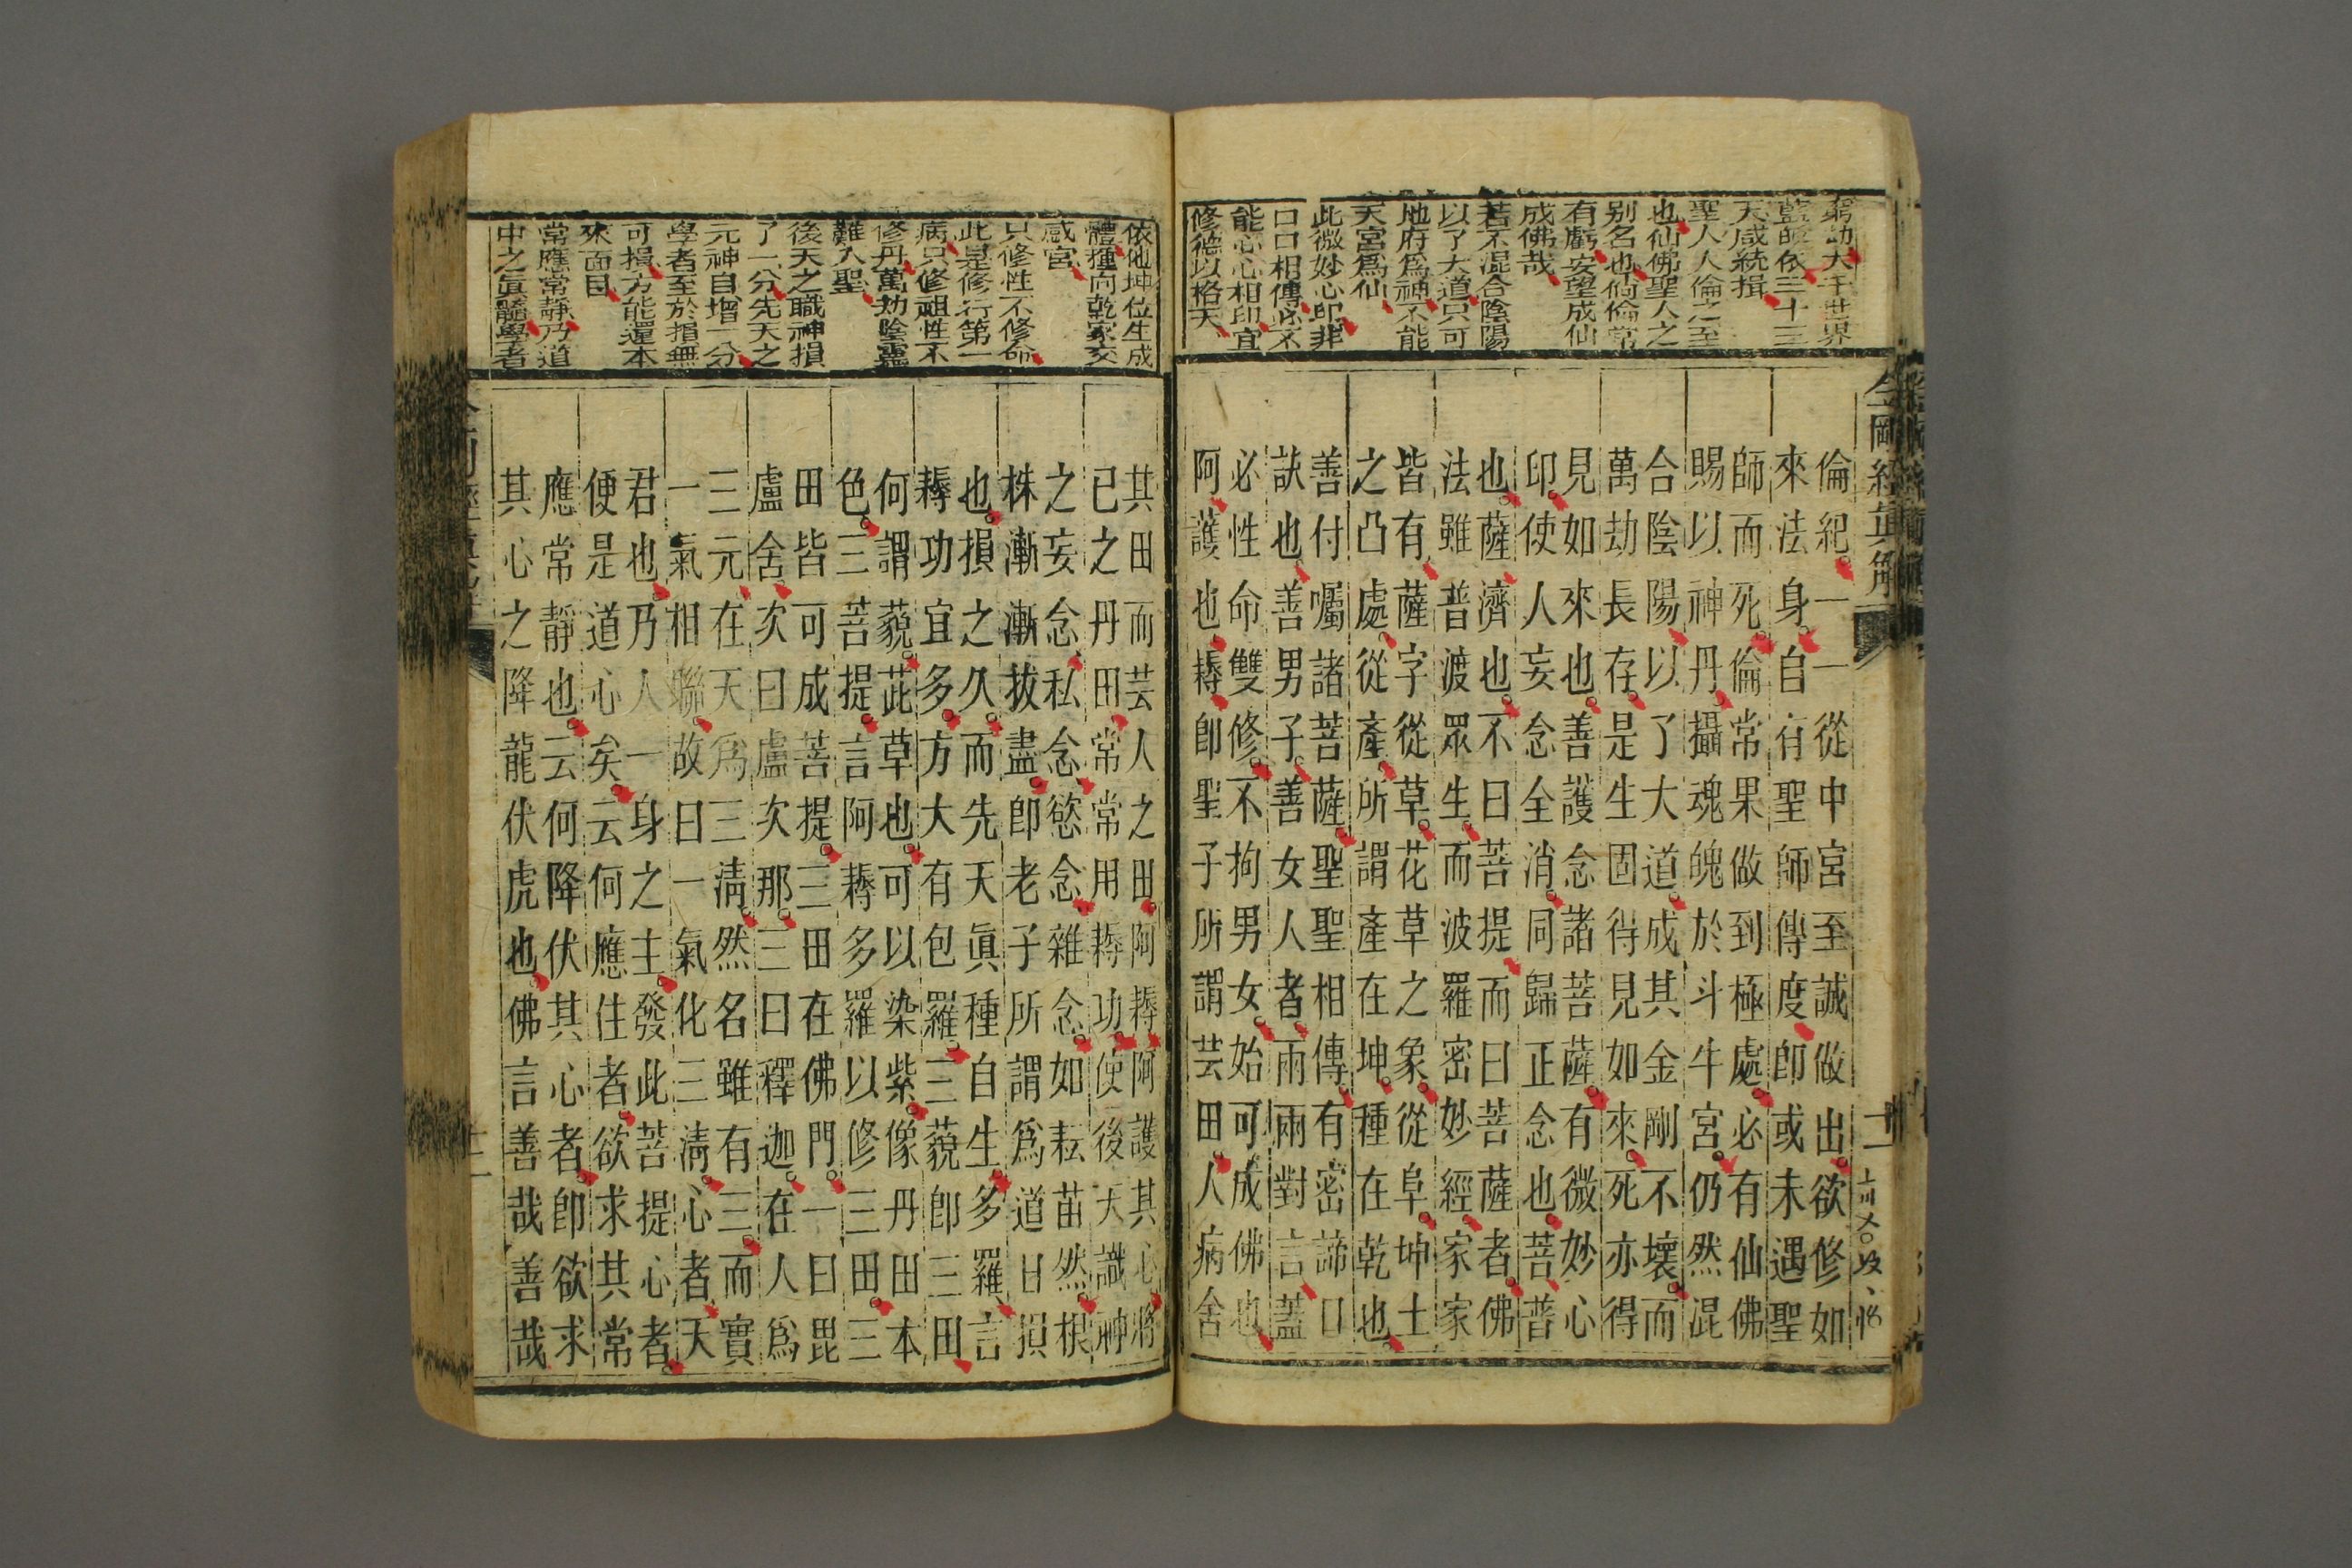 窮劫大千世界
藍師依三十三
天咸統揖
聖人人倫之至
也仙佛聖人之
别名也倘倫常
有虧安望成仙
成佛哉
若不混合陰陽
以了大道只可
地府為神不能
天宮為仙
此微妙心印非
口口相傳必不
能心心相印宜
修德以格天
金剛經眞解
倫紀一一從中宮至誠做出欲修如
來法身自有聖師傳度卽或未遇聖
師而死倫常果做到極處必有仙佛
賜以神丹攝魂魄於斗牛宮仍然混
合陰陽以了大道成其金剛不壞而
萬劫長存是生固得見如來死亦得
見如來也善護念諸菩薩有微妙心
印使人妄念全消同歸正念也菩普
也薩濟也不曰菩提而曰菩薩者佛
法雖普渡眾生而波羅密妙經家家
皆有薩字從草花草之象從阜坤土
之凸處從產所謂產在坤種在乾也
善付囑諸菩薩聖聖相傳有密諦口
訣也善男子善女人者兩兩對言蓋
必性命雙修不拘男女始可成佛也
阿護也耨卽聖子所謂芸田人病舍
依他坤位生成
體種向乾家交
感宮
只修性不修命
此是修行第一
病只修祖性不
修丹萬劫陰靈
難入聖
後天之職神損
了一分先天之
元神自增一分
學者至於損無
可損方能還本
來面目
常應常靜乃道
中之眞髓學者
其田而芸人之田阿耨阿護其心將
已之丹田常常用耨功使後天識神
之妄念私念慾念雜念如耘苗然根
株漸漸拔盡卽老子所謂為道日損
也損之久而先天眞種自生多羅言
耨功宜多方大有包羅三藐卽三田
何謂藐茈草也可以染紫像丹田本
色三菩提言阿耨多羅以修三田三
田皆可成菩提三田在佛門一曰毘
盧舍次曰盧次那三曰釋迦在人為
三元在天為三淸然名雖有三而實
一氣相聯故曰一氣化三淸心者天
君也乃人一身之主發此菩提心者
便是道心矣云何應住者欲求其常
應常靜也云何降伏其心者卽欲求
其心之降龍伏虎也佛言善哉善哉